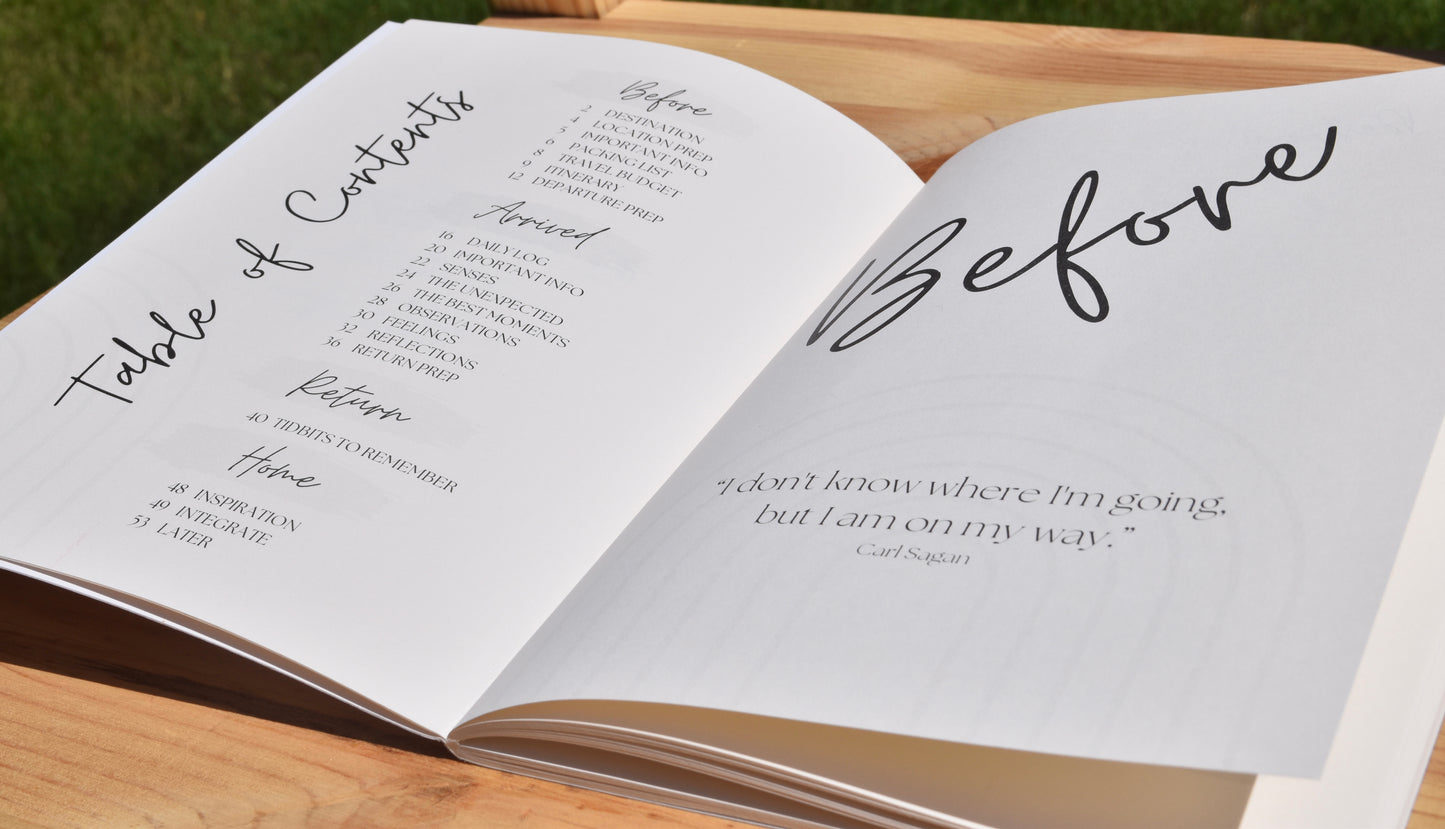 Table of Contents
Before
2 DESTINATION
4 LOCATION PREP
5 IMPORTANT INFO
6 PACKING LIST
8 TRAVEL BUDGET
9 ITINERARY
12 DEPARTURE PREP
Arrived
16 DAILY LOG
20 IMPORTANT INFO
22 SENSES
24 THE UNEXPECTED
26 THE BEST MOMENTS
28 OBSERVATIONS
30 FEELINGS
32 REFLECTIONS
36 RETURN PREP
Return
40 TIDBITS TO REMEMBER
Home
48 INSPIRATION
49 INTEGRATE
53 LATER
Before
“I don't know where I'm going,
but I am on my way.”
Carl Sagan